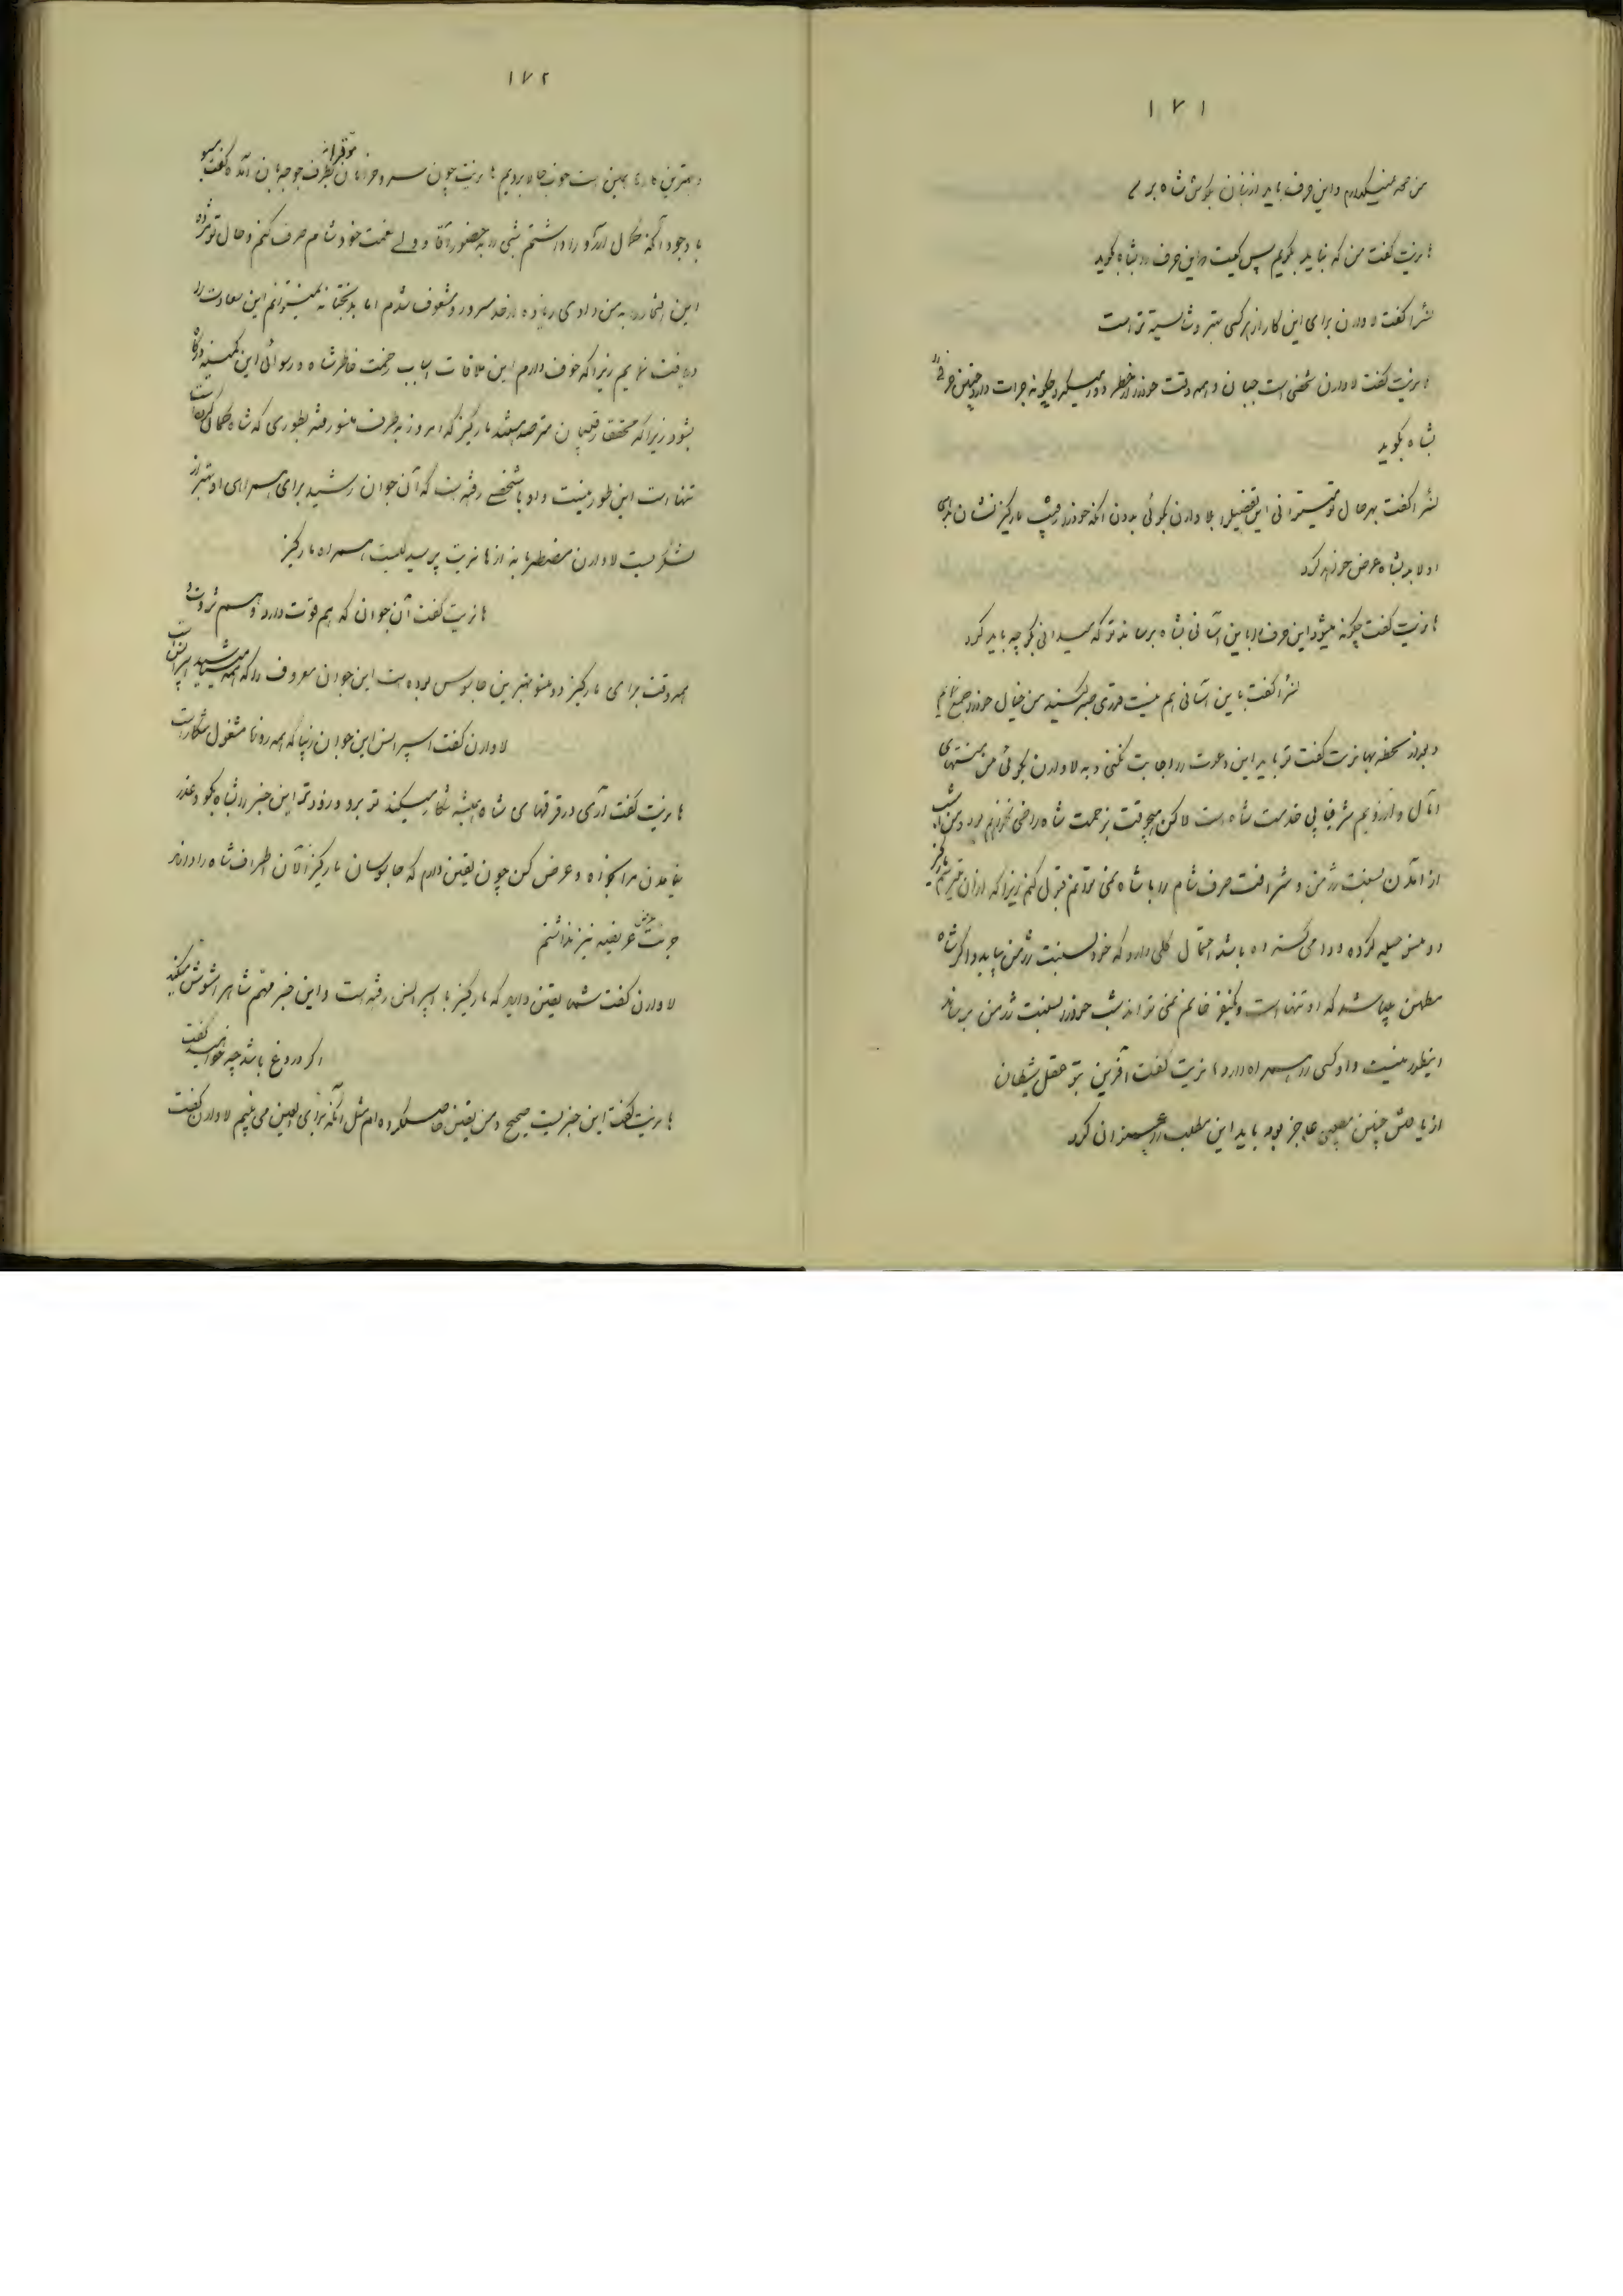 ۱۷۱
من نمیگویم و این حرف باید از زبان بگوش شاه برسد
هانریت گفت من که نباید بگویم پس کیست این حرف را بشاه بگوید
لئرا گفت لاوارن برای این کار از هر کسی بهتر و شایسته تر است
هانریت گفت لاوارن شخصی است جبان و همه وقت خود را از خطر دور میگیرد چگونه جرات دارد چنین حرفی را
بشاه بگوید
لئرا گفت بهر حال تو میتوانی این تفصیل را بلاوارن بگوئی بدون آنکه خود را رقیب مارکیز نشان بدهی
او لابد بشاه عرض خواهد کرد
هانریت گفت چگونه میشود این حرف را باین آسانی بشاه برساند تو که میدانی بگو چه باید کرد
لئرا گفت باین آسانی هم نیست قدری صبر کنید من خیال خود را جمع نمایم
و بعد از لحظه بهانریت گفت تو باید این دعوت را اجابت نکنی و به لاوارن بگوئی من منتهای
آمال و آرزویم شرفیابی خدمت شاه است لاکن هیچوقت بزحمت شاه راضی نخواهم بود و من امشب
از آمدن بسنت ژرمن و شرافت صرف شام را با شاه نمی توانم قبول کنم زیرا که از آن میترسم مارکیز
دومنسو حیله کرده و دامی گسترده باشد احتمال کلی دارد که خود بسنت ژرمن بیاید و اگر شاه
مطمئن باشد که او تنها است و یکنفر خانم نمی تواند شب خود را بسنت ژرمن برساند
اینطور نیست و او کسی را همراه دارد هانریت گفت آفرین بتو عقل شیطان
از یافتن چنین عاجز بود باید این مطلب را عنوان کرد
۱۷۲
و بهترین کارها همین است خوب حالا برویم هانریت چون سرو خرامان موقرانه بطرف جوجه بان آمده گفت
با وجود آنکه کمال آرزو را داشتم شبی را به حضور آقا و ولی نعمت خود شام صرف کنم و حال تو مژده
این افتخار را به من دادی زیاده از حد مسرور و مشعوف شدم اما بدبختانه نمیتوانم این سعادت را
دریافت نمایم زیرا که خوف دارم این ملاقات اسباب زحمت خاطر شاه و رسوائی این کمینه درگاه
بشود زیرا که محقق رقیبان مترصد هستند مارکیز که امروز بطرف منسو رفته بطوری که شاه گمان کرده است
تنها است این طور نیست و او با شخصی رفته است که آن جوان رشید برای همراهی او بهتر از
لشگریست لاوارن مضطربانه از هانریت پرسید کیست همراه مارکیز
هانریت گفت آن جوان که هم قوت دارد و هم ثروت و
همه وقت برای مارکیز دومنسو بهترین جاسوس بوده است این جوان معروف را که همه میشناسید اسپرانس است
لاوارن گفت اسپرانس این جوان زیبا که همه روزها مشغول شکار است
هانریت گفت آری در قرقهای شاه همیشه شکار میکند تو برو و زودتر این خبر را بشاه بگو و عذر
نیامدن مرا بخواه و عرض کن چون یقین دارم که جاسوسان مارکیز الآن اطراف شاه را دارند
جرئت عرض عریضه نیز نداشتم
لاوارن گفت شما یقین دارید که مارکیز با اسپرانس رفته است و این خبر مهم شاه را مشوش میکند
اگر دروغ باشد چه خواهید گفت
هانریت گفت این خبریست صحیح و من یقین حاصل کرده ام مثل آنکه برأی العین می بینم لاوارن گفت